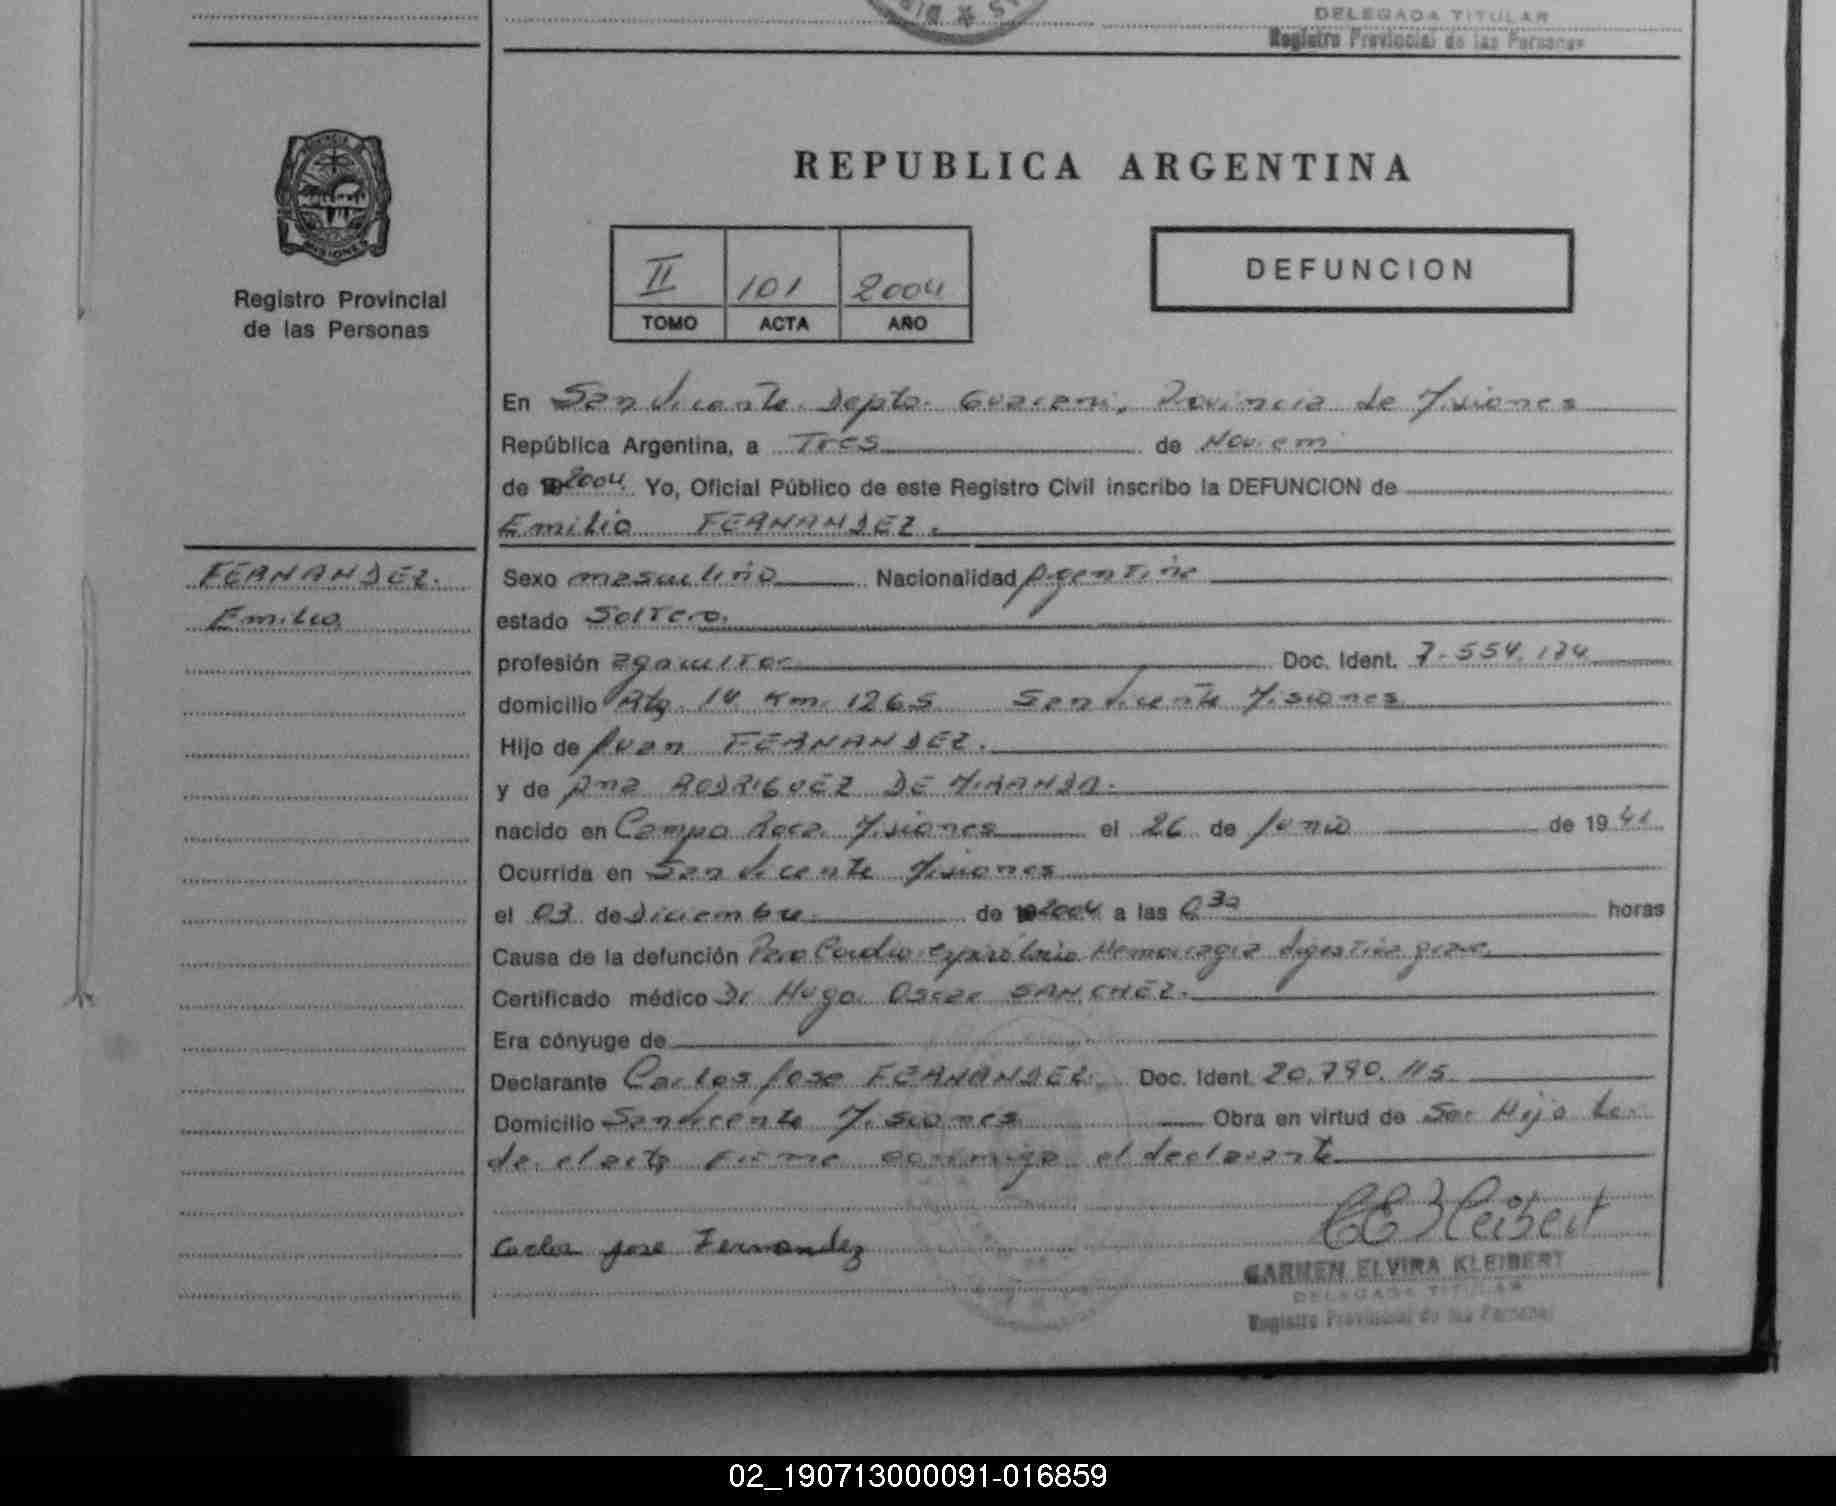 DELEGADA TITULAR
Registro Provincial de las Personas
REPUBLICA ARGENTINA
Registro Provincial
de las Personas
II 101 2004
TOMO ACTA AÑO
DEFUNCION
En San Vicente Depto. Guarani, Provincia de Misiones
República Argentina, a Tres de Noviem
de 2004 Yo, Oficial Público de este Registro Civil inscribo la DEFUNCION de
Emilio FERNANDEZ.
FERNANDEZ.
Emilio
Sexo masculino Nacionalidad Argentina
estado Soltero.
profesión agricultor Doc. Ident. 7.554.174
domicilio Rta. 14 Km. 1265 San Vicente Misiones
Hijo de Juan FERNANDEZ.
y de Ana RODRIGUEZ DE MIRANDA.
nacido en Campo Roca Misiones el 26 de Junio de 1941
Ocurrida en San Vicente Misiones
el 03 de Diciembre de 2004 a las 30 horas
Causa de la defunción Paro Cardio respiratorio Hemorragia digestiva grave
Certificado médico Dr Hugo Oscar SANCHEZ.
Era cónyuge de
Declarante Carlos Jose FERNANDEZ. Doc. Ident. 20.790.115
Domicilio San Vicente Misiones Obra en virtud de Ser Hijo Le
da el acta firma conmigo el declarante
Carlos jose Fernandez
CEKleibert
CARMEN ELVIRA KLEIBERT
DELEGADA TITULAR
Registro Provincial de las Personas
02_190713000091-016859